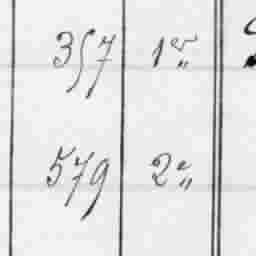 357 1er „
579 2e „